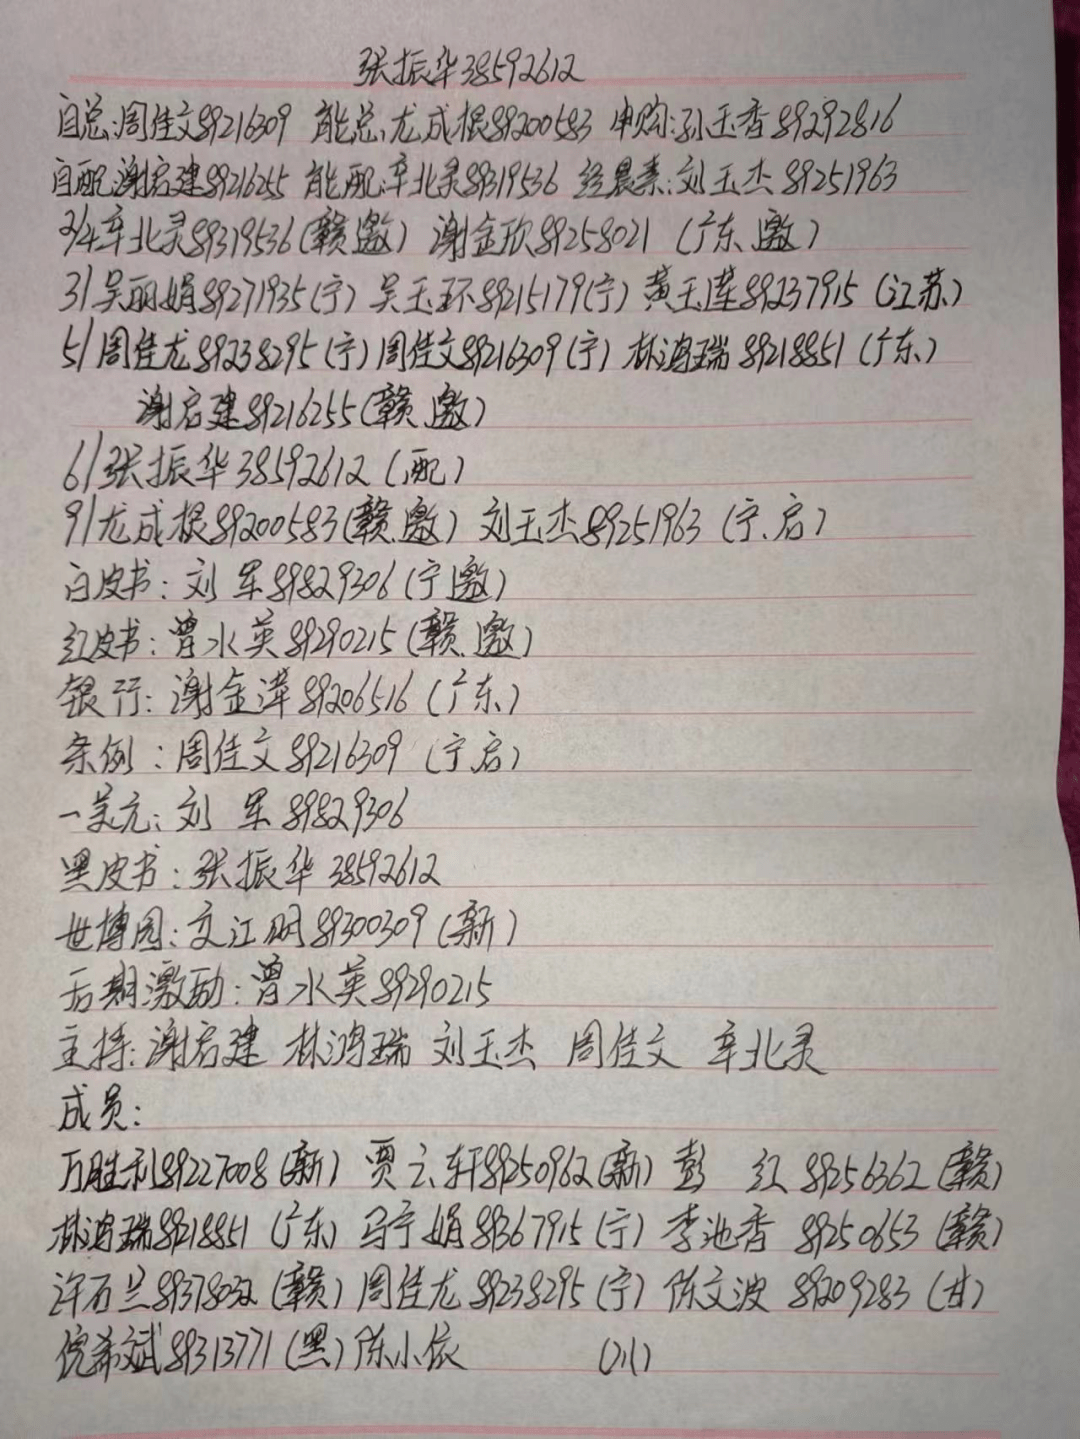 张振华38592612
自总:周佳文89216309 能总:龙成根89200583 申购:孙玉香89292816
自配:谢启建89216255 能配:辛北灵89319536 经晨素:刘玉杰89251963
2/4辛北灵89319536(赣.邀) 谢金欣89258021 (广东.邀)
3/吴丽娟89271935(宁) 吴玉环89215179(宁) 黄玉莲89237915 (江苏)
5/周佳龙89238295(宁)周佳文89216309(宁) 林鸿瑞89218851 (广东)
谢启建89216255(赣.邀)
6/张振华38592612 (配)
9/龙成根89200583(赣.邀) 刘玉杰89251963 (宁.启)
白皮书:刘 军89829306(宁邀)
红皮书:曾水英89290215(赣.邀)
银行:谢金萍89206516 (广东)
条例:周佳文89216309 (宁启)
一美元:刘 军89829306
黑皮书:张振华38592612
世博园:文江明89300309(新)
后期激励:曾水英89290215
主持:谢启建 林鸿瑞 刘玉杰 周佳文 辛北灵
成员:
万胜利89227008(新) 贾云轩89250962(新) 彭 红89256362(赣)
林鸿瑞89218851 (广东) 马宁娟89367915(宁) 李池香 89250653(赣)
许石兰89378032(赣)周佳龙89238295(宁) 陈文波 89209283 (甘)
倪希斌89313771(黑)陈小依 (川)